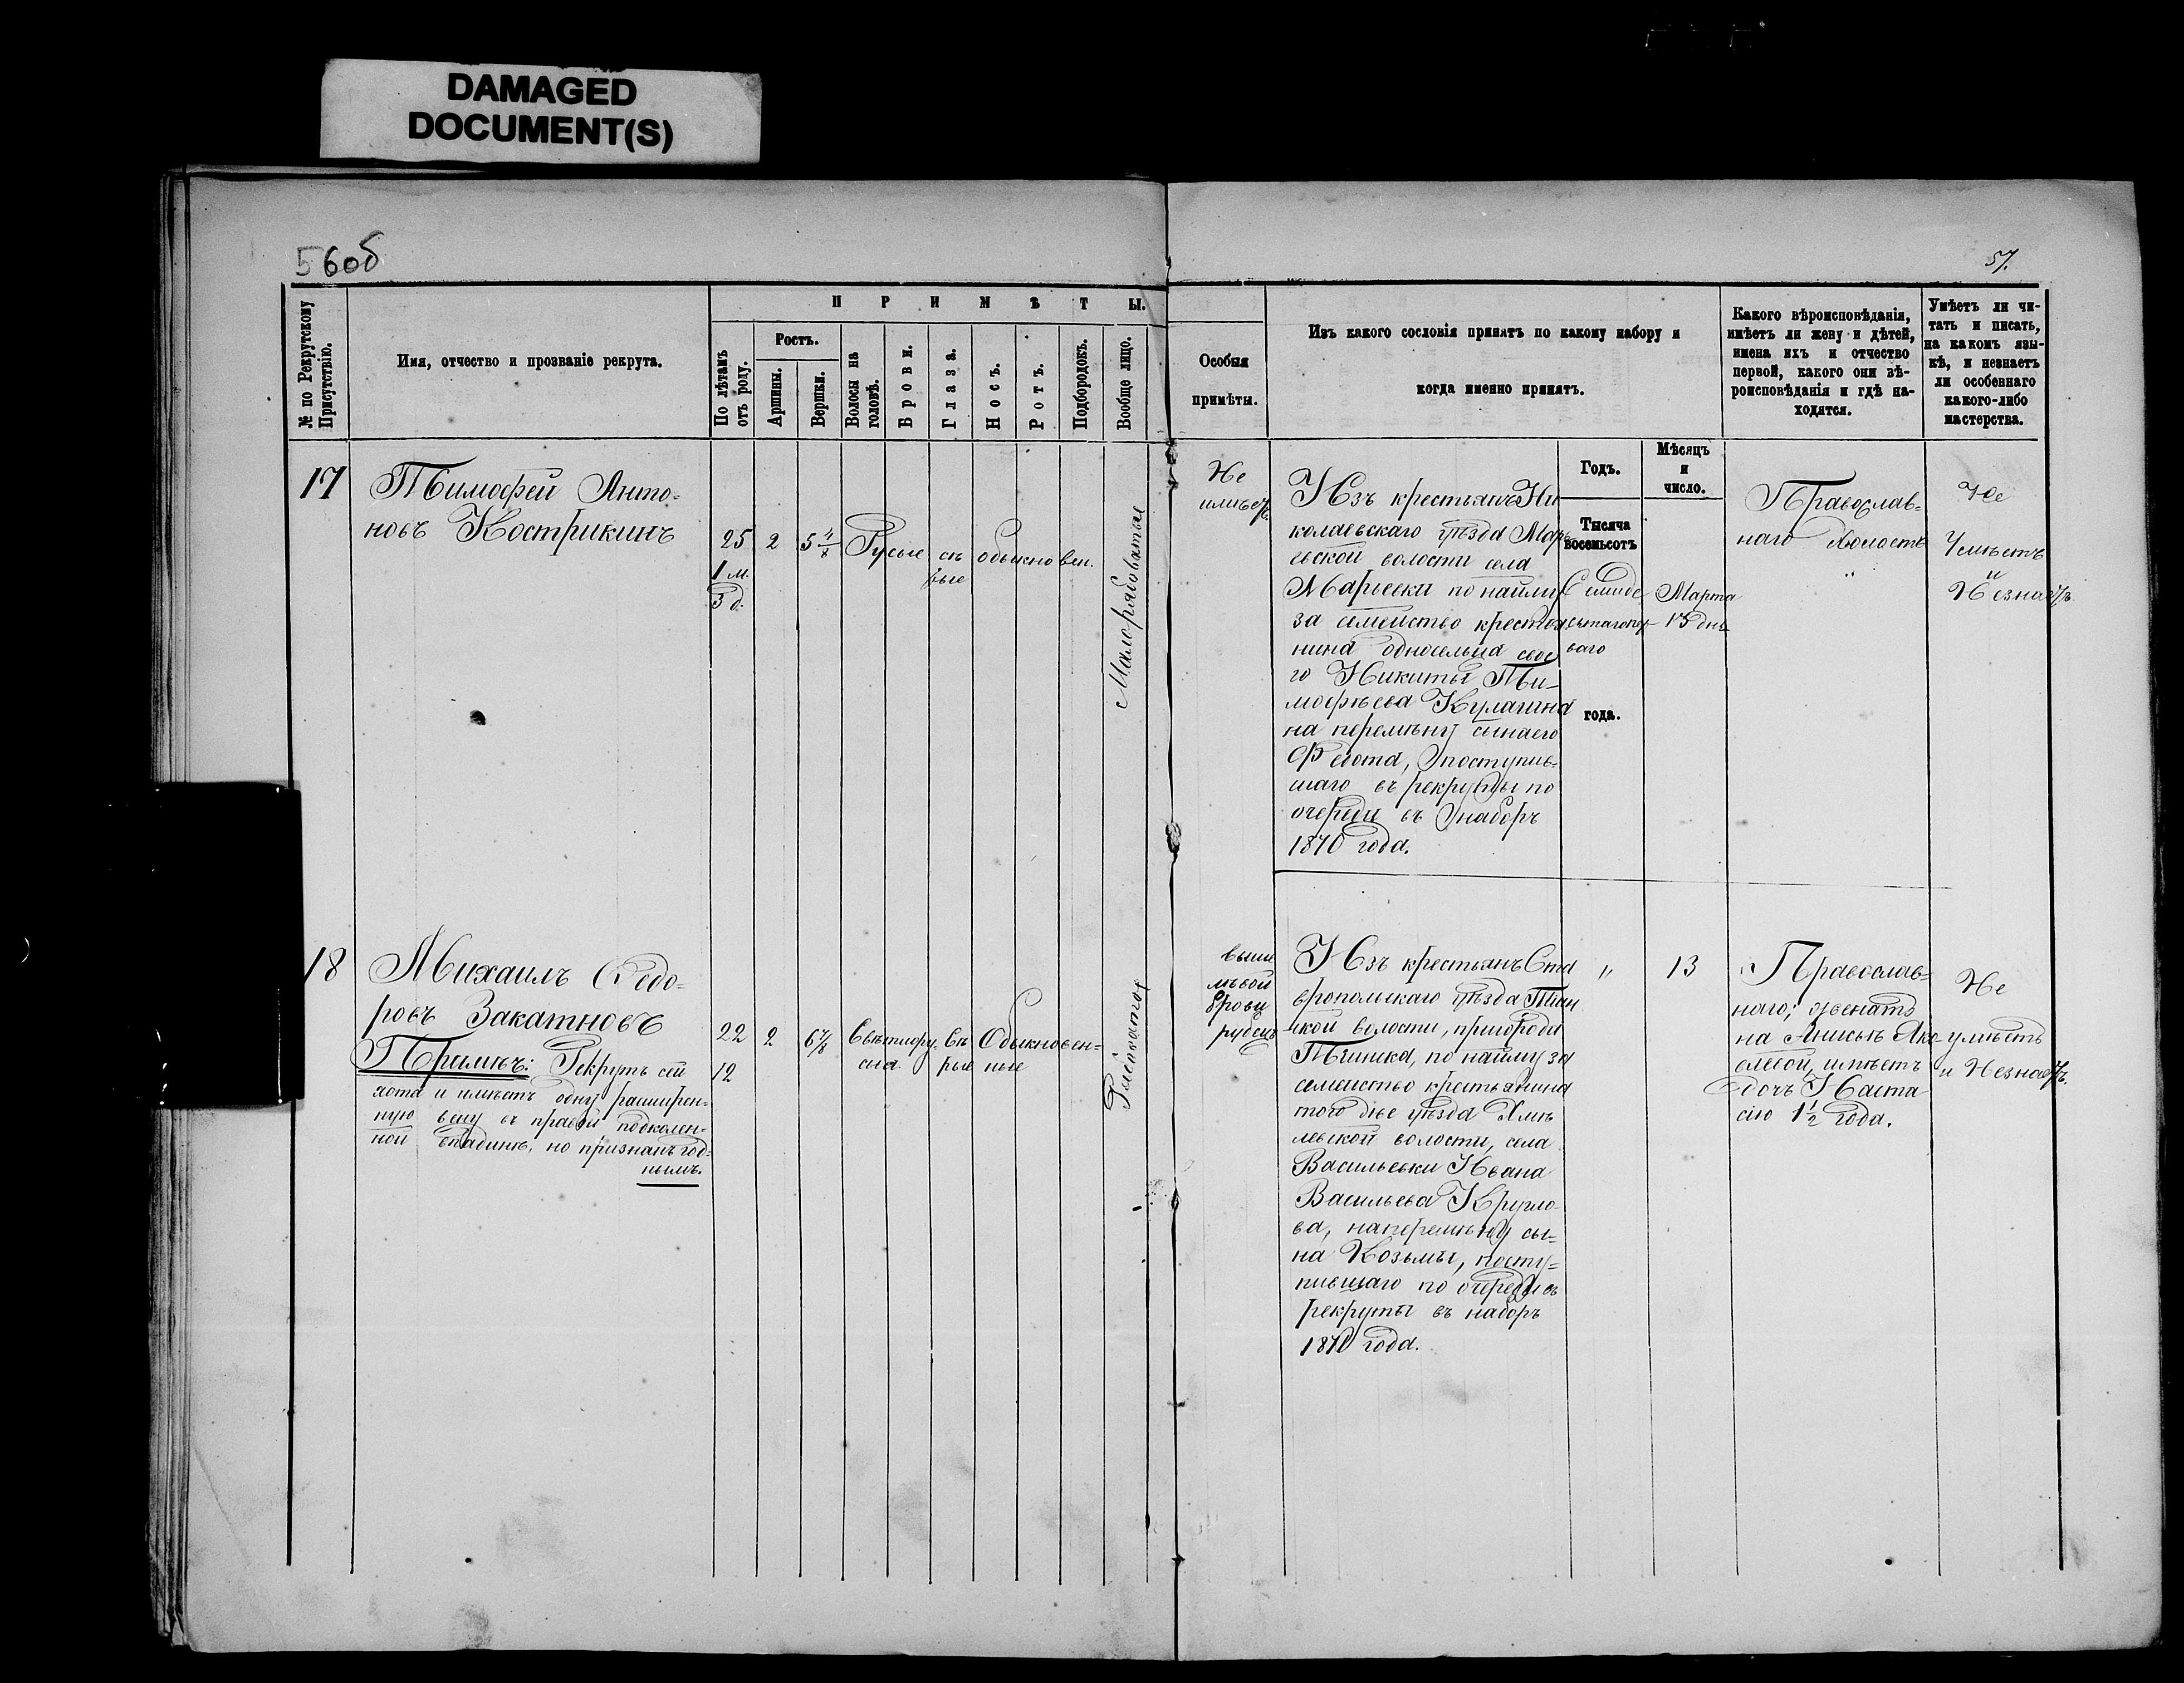 DAMAGED
DOCUMENT(S)
56об
57.
№ по Рекрутскому
Присутствію.
Имя, отчество и прозваніе рекрута.
ПРИМѢТЫ.
По лѣтамъ
отъ роду.
Ростъ.
Аршины.
Вершки.
Волосы на
головѣ.
Брови.
Глаза.
Носъ.
Ротъ.
Подбородокъ.
Вообще лицо.
Особыя
примѣты.
Изъ какого сословія принятъ по какому набору и
когда именно принятъ.
Какого вѣроисповѣданія,
имѣетъ ли жену и дѣтей,
имена ихъ и отчество
первой, какого они вѣ-
роисповѣданія и гдѣ на-
ходятся.
Умѣетъ ли чи-
тать и писать,
на какомъ язы-
кѣ, и незнаетъ
ли особеннаго
какого-либо
мастерства.
17
Тимофей Анто-
новъ Кострикинъ
25
1 м.
3 д.
2
5
Русые
сѣ
рые
обыкновен.
Малорябоватые
Не
имѣетъ
Изъ крестьянъ Ни
колаевскаго уѣзда Марь
евской волости села
Марьевки по найму
за семейство крестья
нина односельца свое
го Никиты Ти-
мофѣева Кулагина
на перемѣну сына его
Федота, поступив-
шаго въ рекруты по
очереди въ наборъ
1870 года.
Годъ.
Тысяча
восемьсотъ
Семиде
сятаго
года.
Мѣсяцъ
и
число.
Марта
13 дня
Православ-
наго холостъ
"
Не
Умѣетъ
и
Незнаетъ
18
Михаилъ Федо-
ровъ Закатновъ
Примѣч: Рекрутъ сей
хотя и имѣетъ одну расширен-
ную вену въ правой подколен-
ной впадинѣ, но признанъ год-
нымъ.
22
12
2
6 7/8
Свѣтлору
сыя
Сѣ
рые
Обыкновен-
ные
выше
лѣвой
брови
рубецъ
Изъ крестьянъ Ста
вропольскаго уѣзда Тиин
ской волости, пригорода
Тіинска, по найму за
семейство крестьянина
того же уѣзда Хмѣ
левской волости, села
Васильевки Ивана
Васильева Кругло
ва, на перемѣну сы-
на Козьмы, посту-
пившаго по очереди въ
рекруты въ наборъ
1870 года.
"
13
Православ-
наго, женатъ
на Анисьѣ Яко-
влевой, имѣетъ
дочь Наста
сію 1 1/2 года.
Не
умѣетъ
и Незнаетъ